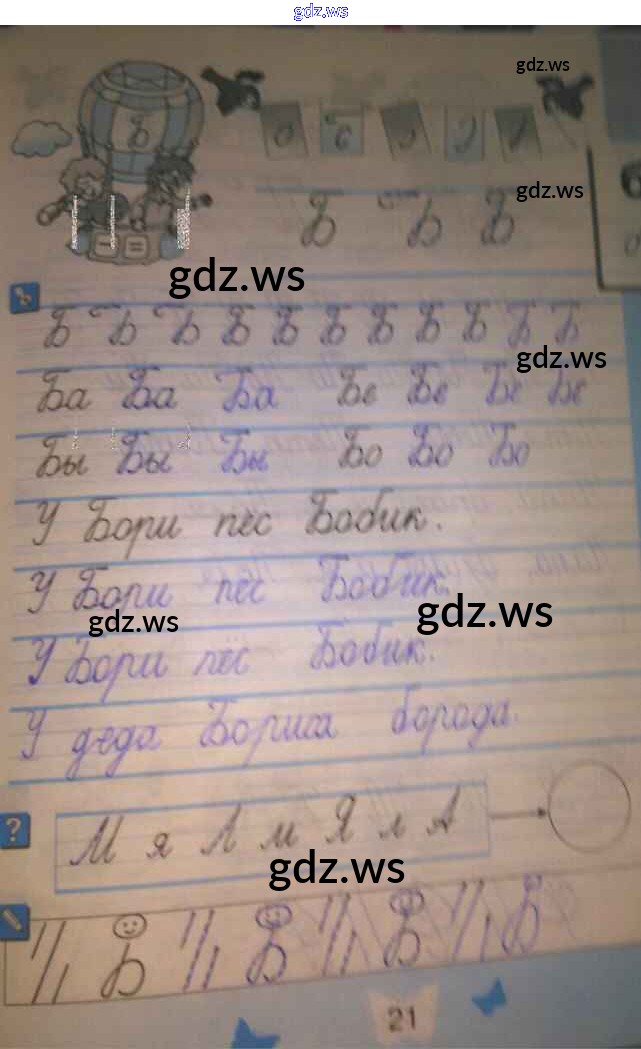 gdz.ws
gdz.ws
Б
Б Б Б
gdz.ws
gdz.ws
Б Б Б Б Б Б Б Б Б Б Б
gdz.ws
Ба Ба Ба Бе Бе Бе Бе
Бы Бы Бы Бо Бо Бо
У Бори пёс Бобик.
У Бори пёс Бобик.
gdz.ws
gdz.ws
У Бори пёс Бобик.
У деда Бориса борода.
?
М я Л м Я л А
gdz.ws
21